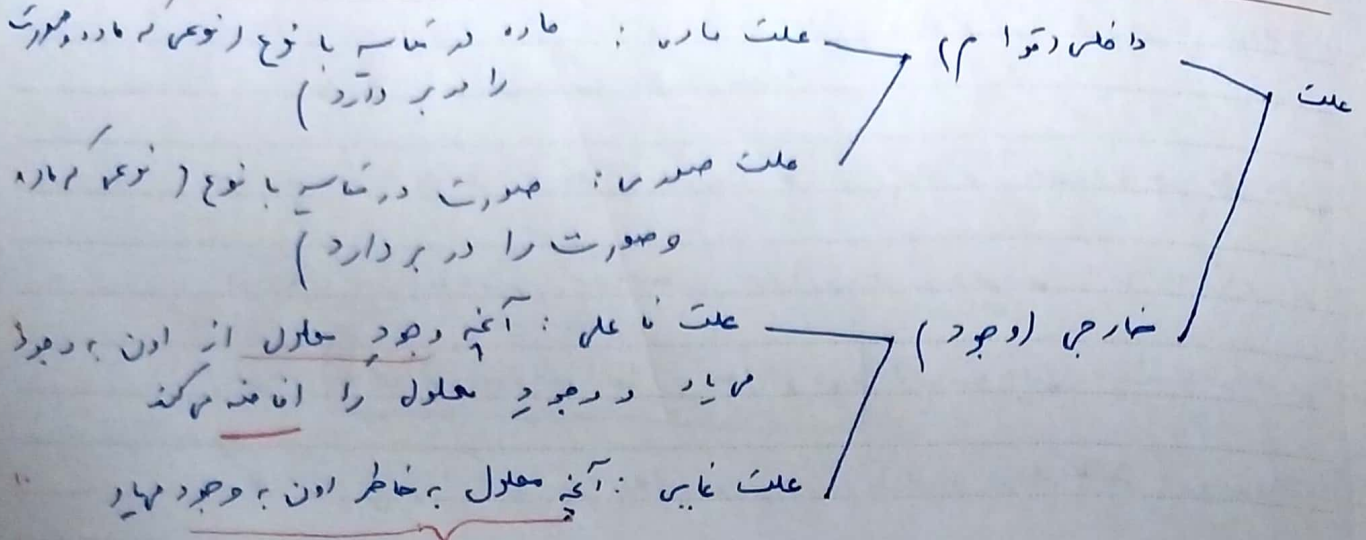 علت
داخلی (قوام)
علت مادی : ماده در مقایسه با نوع (نوعی که ماده و صورت
را در بر دارد)
علت صوری : صورت در مقایسه با نوع (نوعی که ماده
و صورت را در بر دارد)
خارجی (وجود)
علت فاعلی : آنچه وجودِ معلول از اون به وجود
می یاد و وجودِ معلول را افاضه می کند
علت غایی : آنچه معلول به خاطر اون به وجود میاد